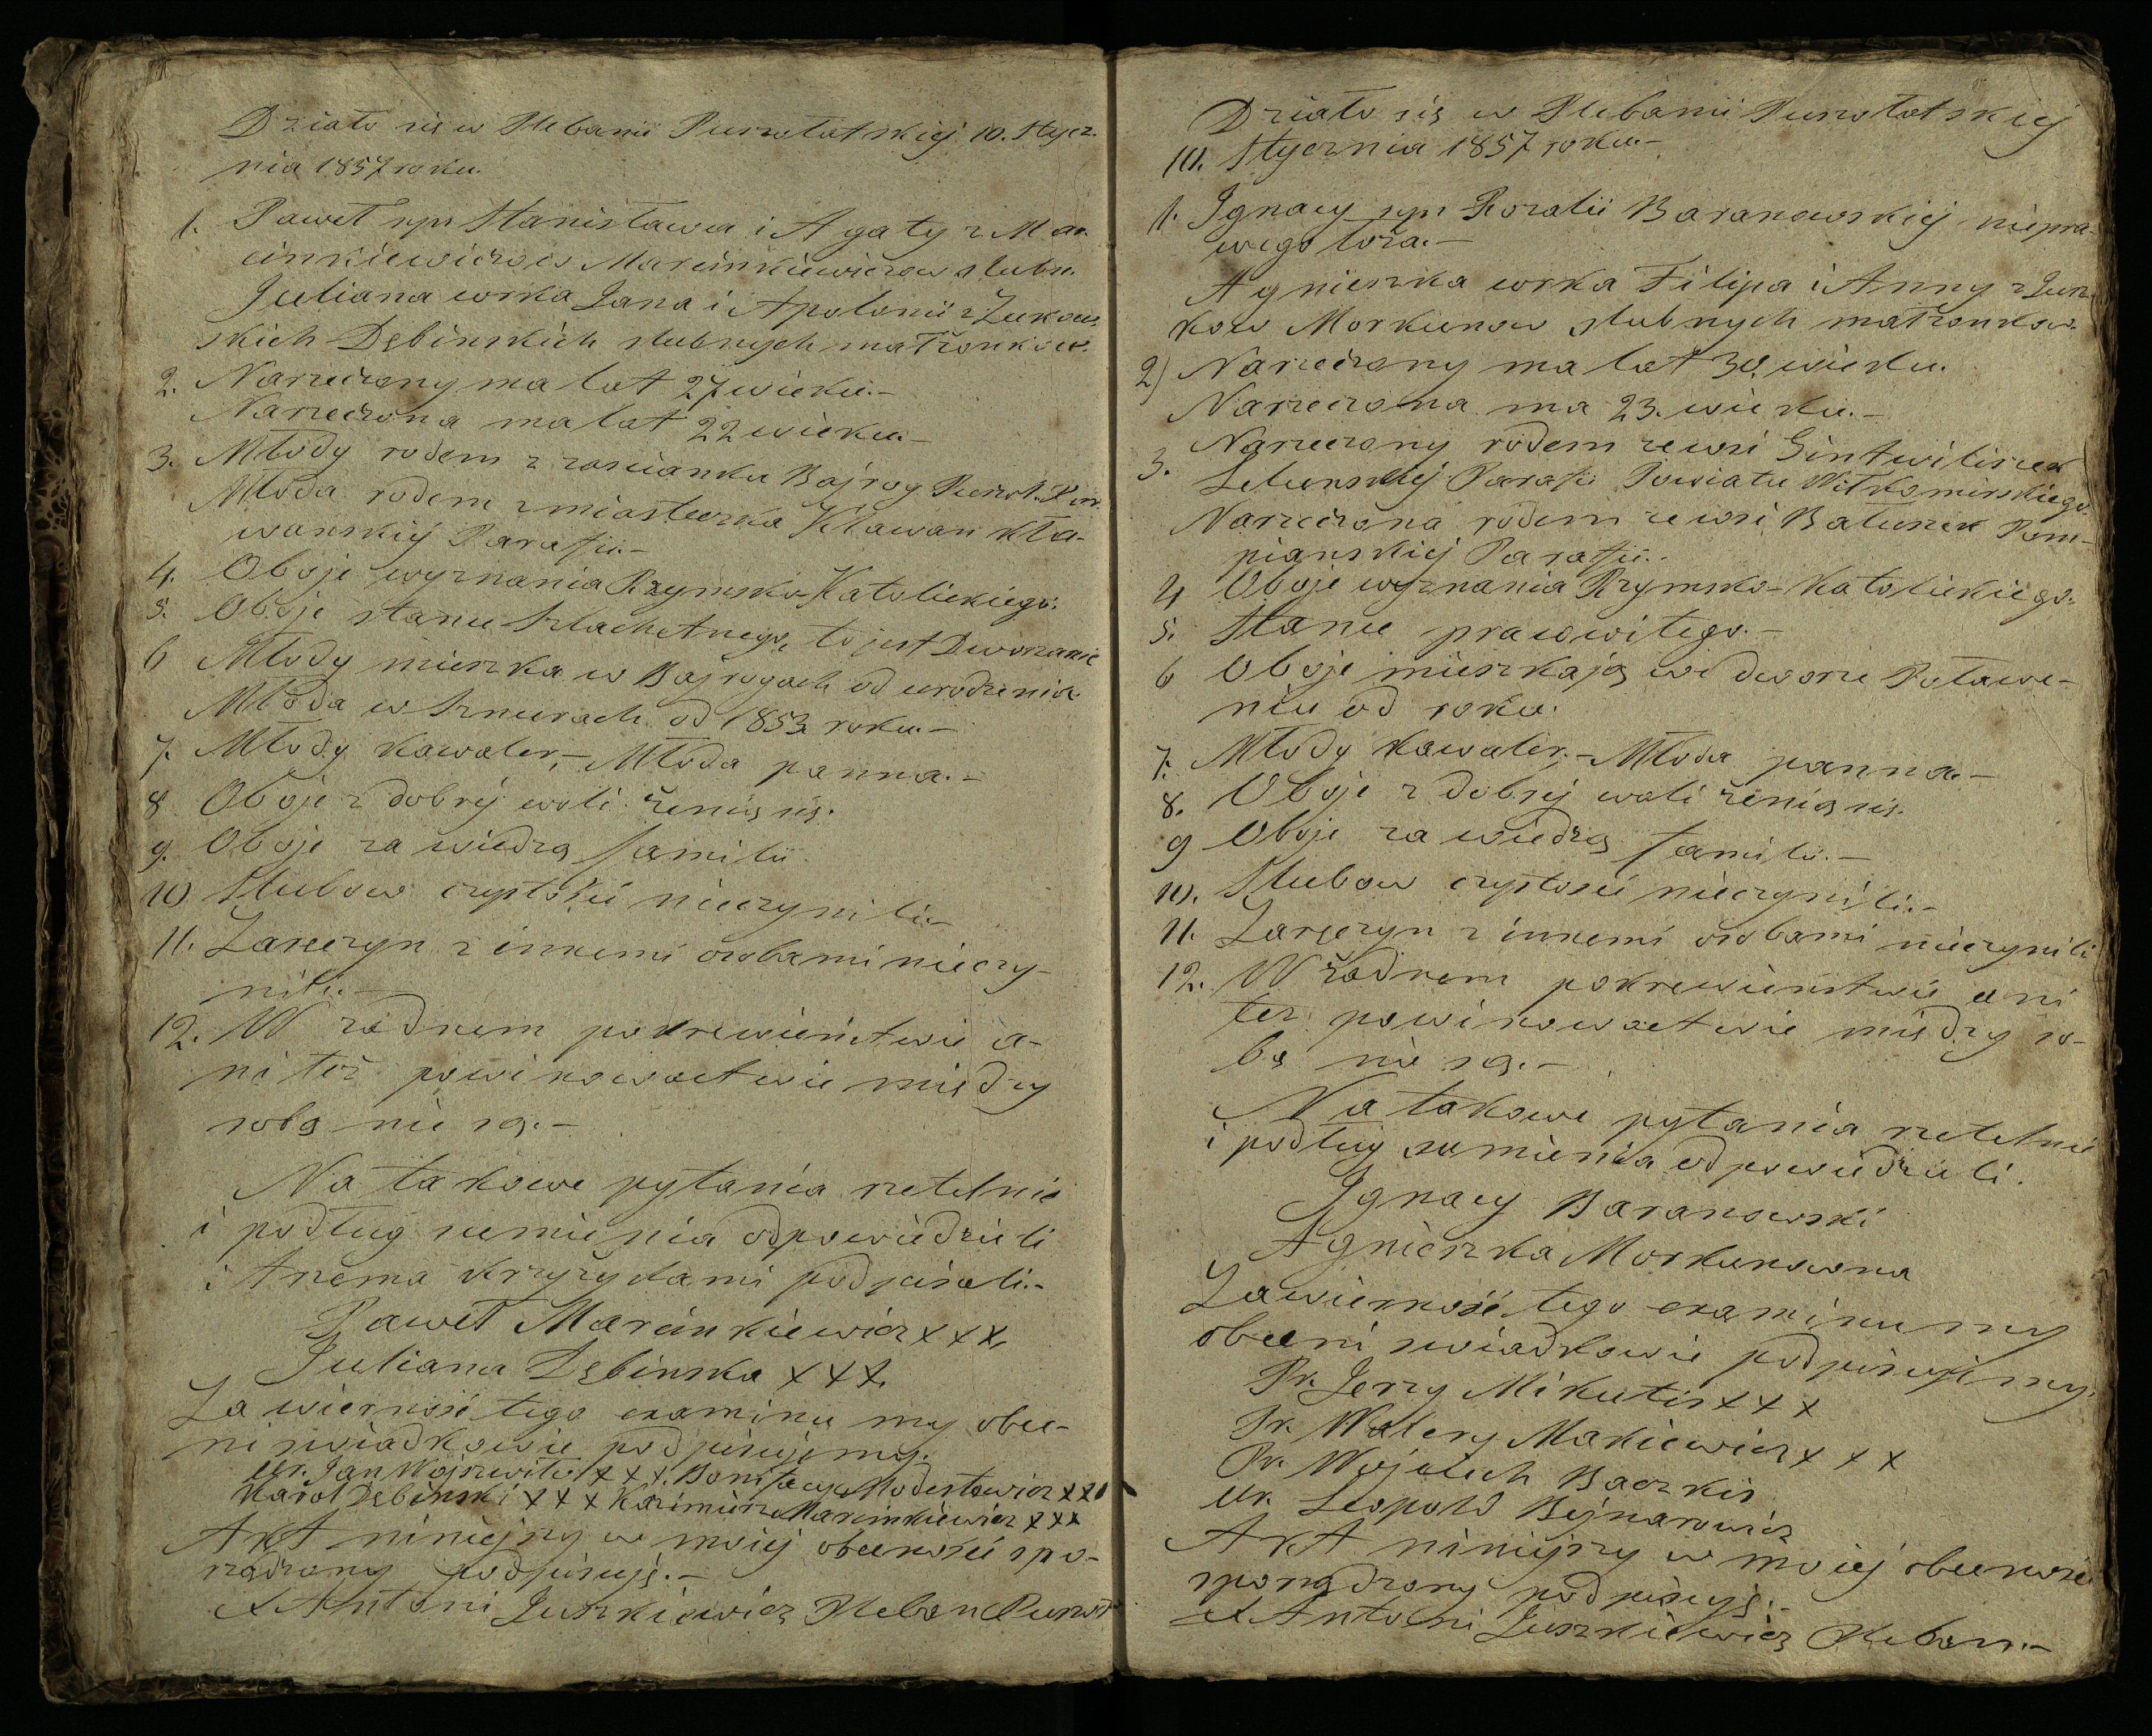 Działo się w Plebanii Puszołatskiej 10. Stycz-
nia 1857 roku.
1. Paweł syn Stanisława i Agaty z Mar-
cinkiewiczow Marcinkiewiczow slubn.
Juliana corka Jana i Apolonii z Zukow-
skich Dębinskich slubnych małżonkow.
2. Narzeczony ma lat 27 wieku.-
Narzeczona ma lat 22 wieku.-
3. Młody rodem z zascianku Bajrog
Młoda rodem z miasteczka Kławan Kła-
wanskiej Parafii.-
4. Oboje wyznania Rzymsko-Katolickiego.
5. Oboje stanu Szlachetnego, to jest Dworzanie
6 Młody mieszka w Bajrogach od urodzenia
Młoda w Sznurach od 1853 roku.-
7. Młody kawaler,- Młoda panna.-
8 Oboje z dobrej woli żenią się.
9. Oboje za wiedzą familii.
10 Slubow czystości nieczynili.-
11. Zaręczyn z innemi osobami nieczy-
nili.-
12. W żadnem pokrewieństwie a-
ni też powinowactwie między
sobą nie są.-
Na takowe pytania rzetelnie
i podług sumienia odpowiedzieli
i trzema krzyżykami podpisali.-
Paweł Marcinkiewicz x x x
Juliana Dębinska x x x.
Za wiernosć tego examinu my obec-
ni swiadkowie podpisujemy.
Ur. Jan Wojszwiłło x x x. Bonifacy Modestowicz x x x
Karol Dębinski x x x Kazimierz Marcinkiewicz x x x
Akt niniejszy w moiej obecnosci spo-
rządzony podpisuję.-
X Antoni Juszkiewicz Pleban Puszoł
Działo się w Plebanii Puszołatskiej
10. Stycznia 1857 roku.-
1. Ignacy syn Rozalii Baranowskiej niepra-
wego łoża.-
Agnieszka corka Filipa i Anny z Jusz-
kow Morkunow slubnych małżonkow.
2) Narzeczony ma lat 30 wieku.
Narzeczona ma 23. wieku.-
3. Narzeczony rodem ze wsi Gintwiliszek
Parafii Powiatu Wiłkomirskiego.
Narzeczona rodem ze wsi Batunek Pom-
pianskiej Parafii.-
4 Oboje wyznania Rzymsko-Katolickiego.
5. Stanu prawowitego.-
6 Oboje mieszkają we dworze Poławe-
niu od roku.
7. Młody kawaler.- Młoda panna.-
8. Oboje z dobrej woli żenią się.
9 Oboje za wiedzą familii.-
10. Slubow czystosci nieczynili.-
11. Zaręczyn z innemi osobami nieczynili
12. W żadnem pokrewieństwie ani
też powinowactwie między so-
bą nie są.-
Na takowe pytania rzetelnie
i podług sumienia odpowiedzieli.
Ignacy Baranowski
Agnieszka Morkunowna
Za wiernosć tego examinu my
obecni swiadkowie podpisujemy.
Pr. Jerzy Mikutis x x x
Pr. Walery Makiewicz x x x
Pr. Wojciech Baczkis
Ur. Leopold Bejnarowicz
Akt niniejszy w moiej obecnosci
sporządzony podpisuję.-
X Antoni Juszkiewicz Pleban.-